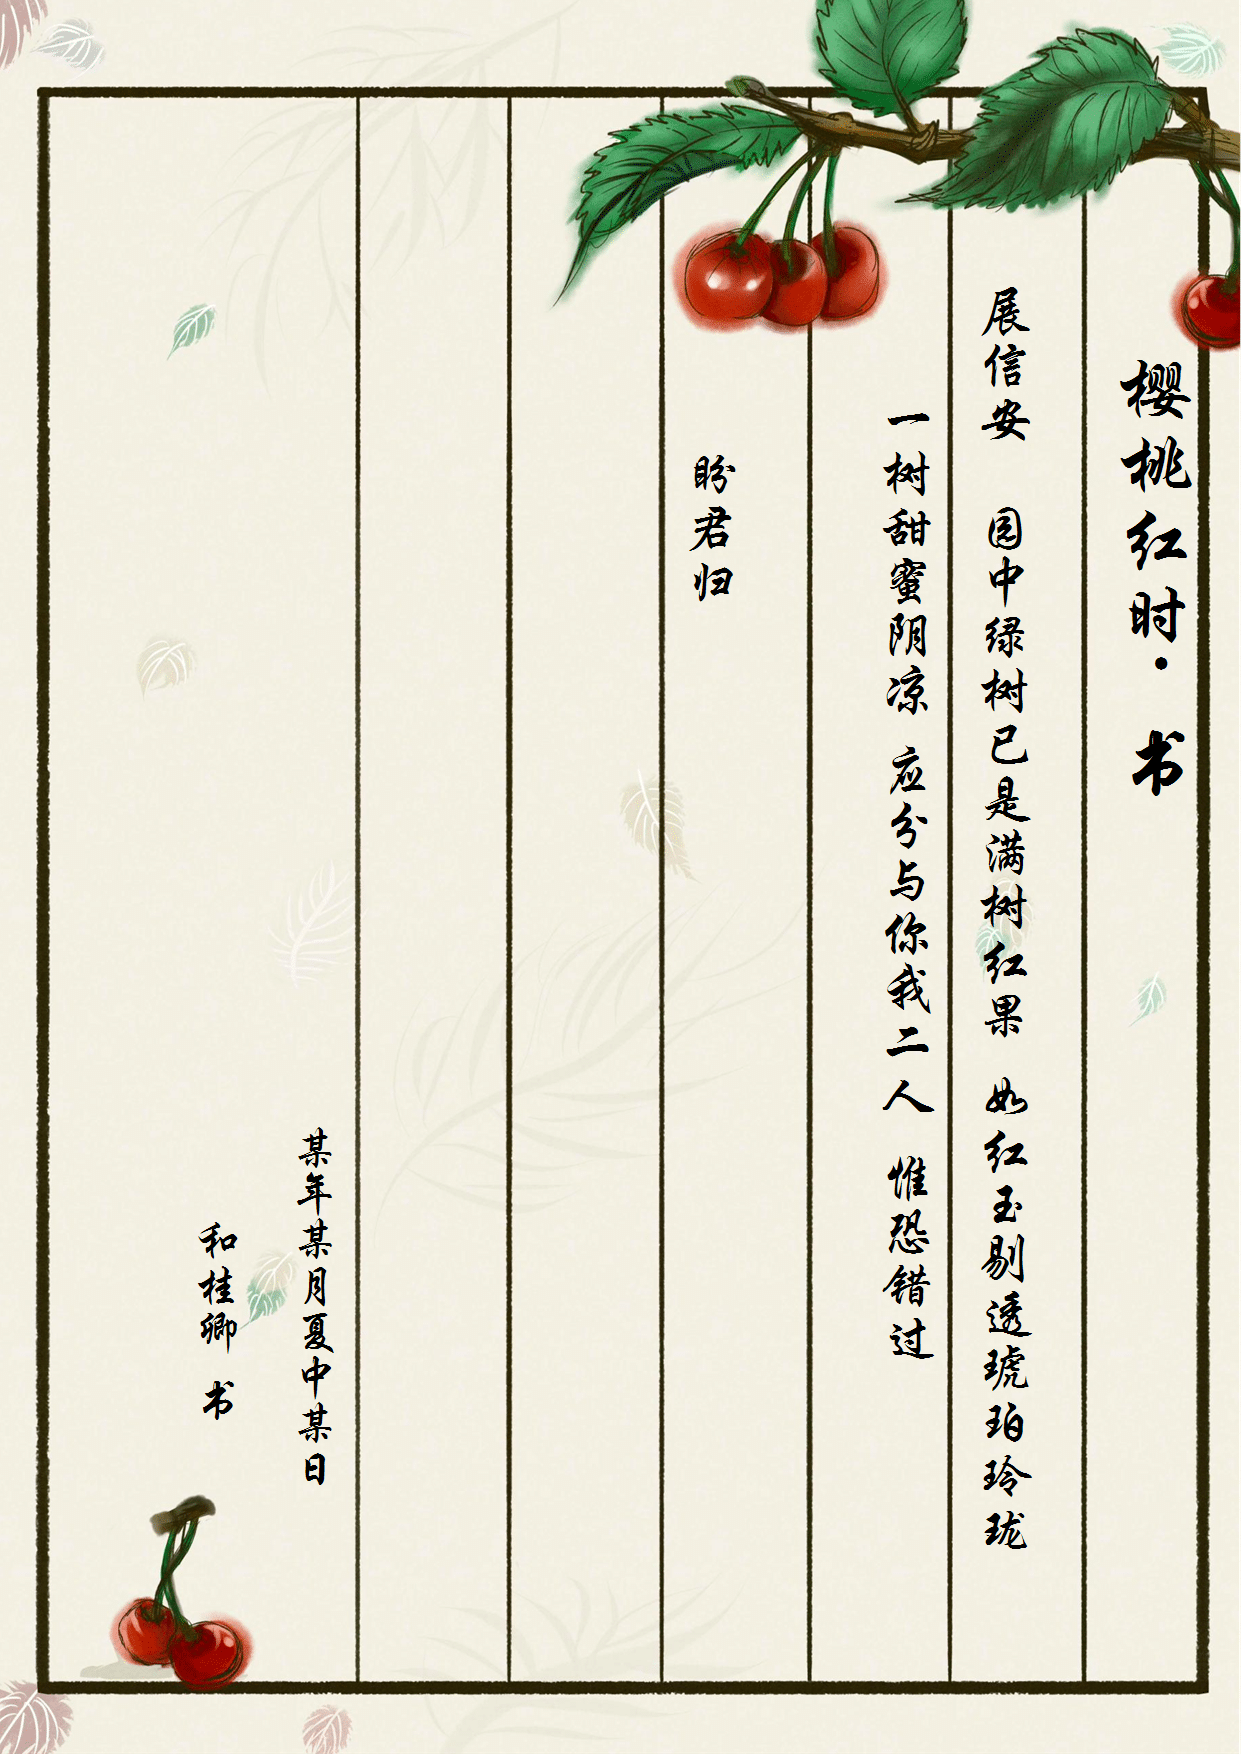 樱桃红时·书
展信安 园中绿树已是满树红果 如红玉剔透琥珀玲珑
一树甜蜜阴凉 应分与你我二人 惟恐错过
盼君归
某年某月夏中某日
和桂卿 书